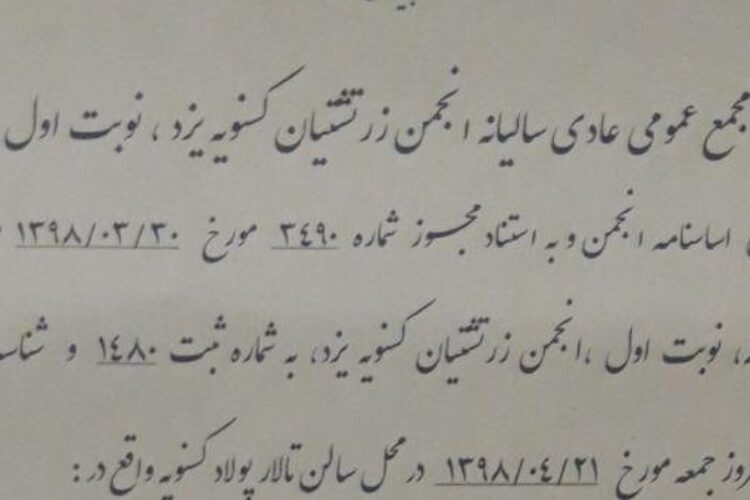 مجمع عمومی عادی سالیانه انجمن زرتشتیان کسنویه یزد ، نوبت اول
اساسنامه انجمن و به استناد مجوز شماره ٣٤٩٠ مورخ ١٣٩٨/٠٣/٣٠
نوبت اول ،انجمن زرتشتیان کسنویه یزد، به شماره ثبت ١٤٨٠ و
روز جمعه مورخ ١٣٩٨/٠٤/٢١ در محل سالن تالار پولاد کسنویه واقع در :